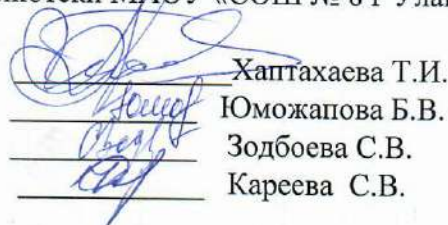 МАОУ «СОШ № 8 г Улан
Хаптахаева Т.И.
Юможапова Б.В.
Зодбоева С.В.
Кареева С.В.